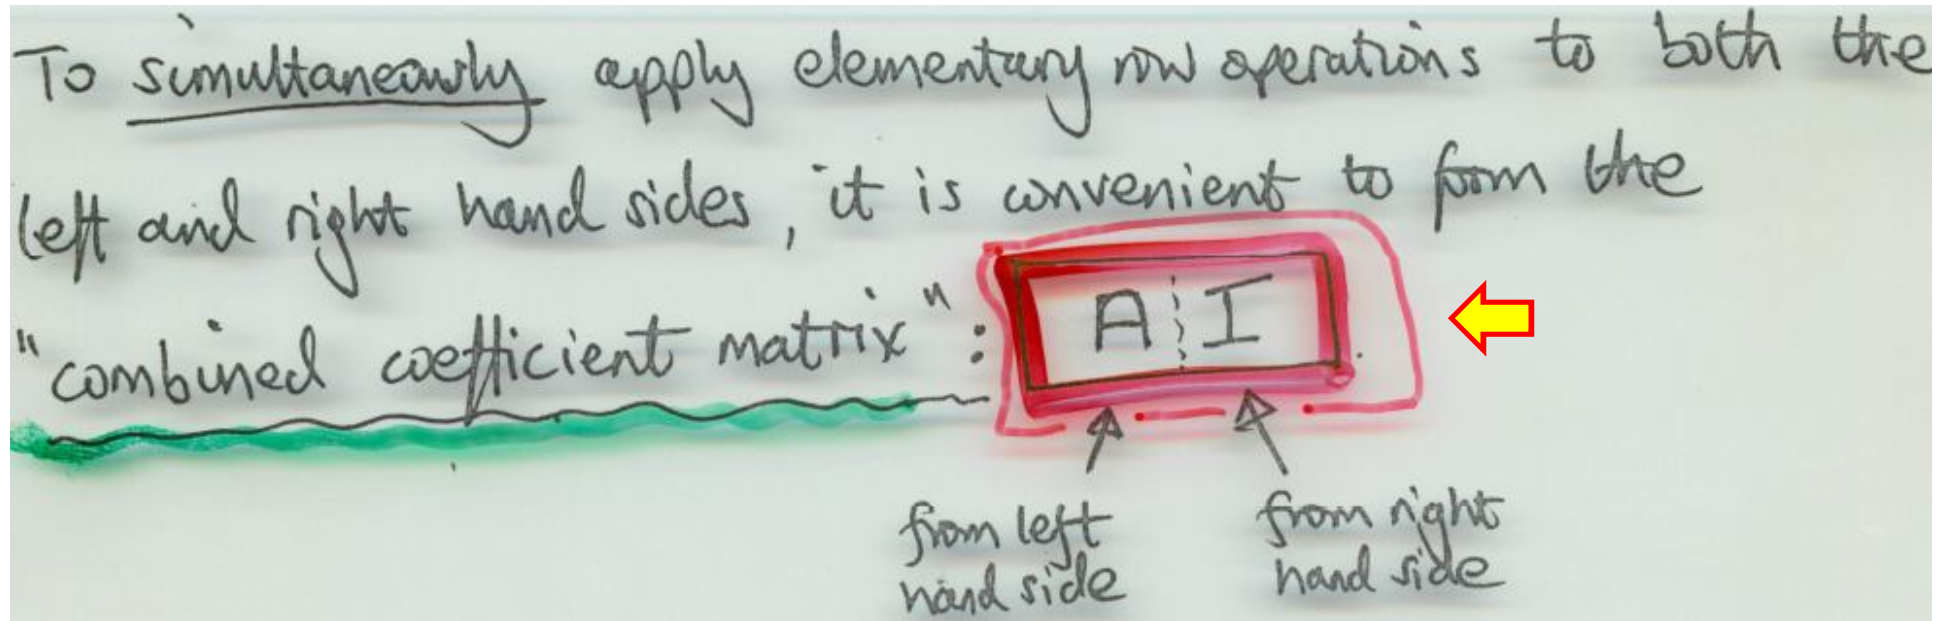 To simultaneously apply elementary row operations to both the
left and right hand sides, it is convenient to form the
"combined coefficient matrix": A ¦ I
from left hand side
from right hand side